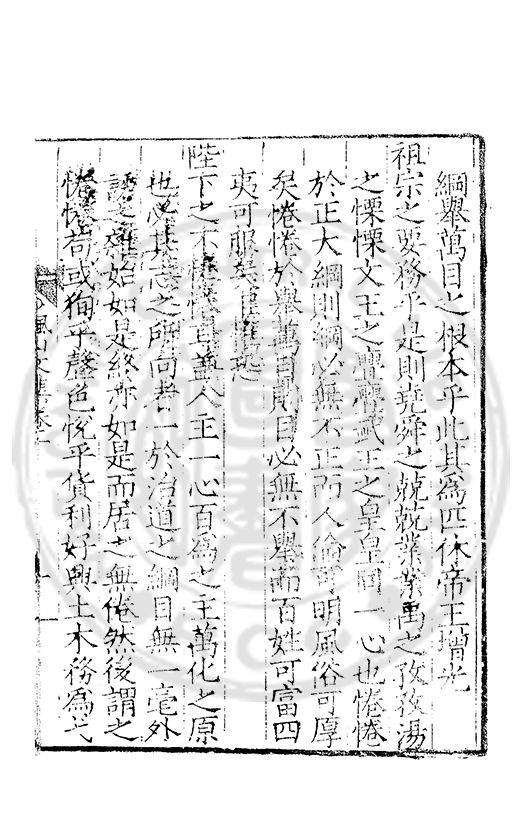 綱舉萬目之根本乎此其為匹休帝王增光
祖宗之要務乎是則堯舜之兢兢業業禹之孜孜湯
之慄慄文王之亹亹武王之皇皇同一心也惓惓
於正大綱則綱必無不正而人倫可明風俗可厚
矣惓惓於舉萬目則目必無不舉而百姓可富四
夷可服矣臣惟恐
陛下之不惓惓耳蓋人主一心百為之主萬化之原
也必其志之所向者一於治道之綱目無一毫外
誘之雜始如是終亦如是而居之無倦然後謂之
惓惓苟或狥乎聲色悅乎貨利好興土木務為弋
山文集卷